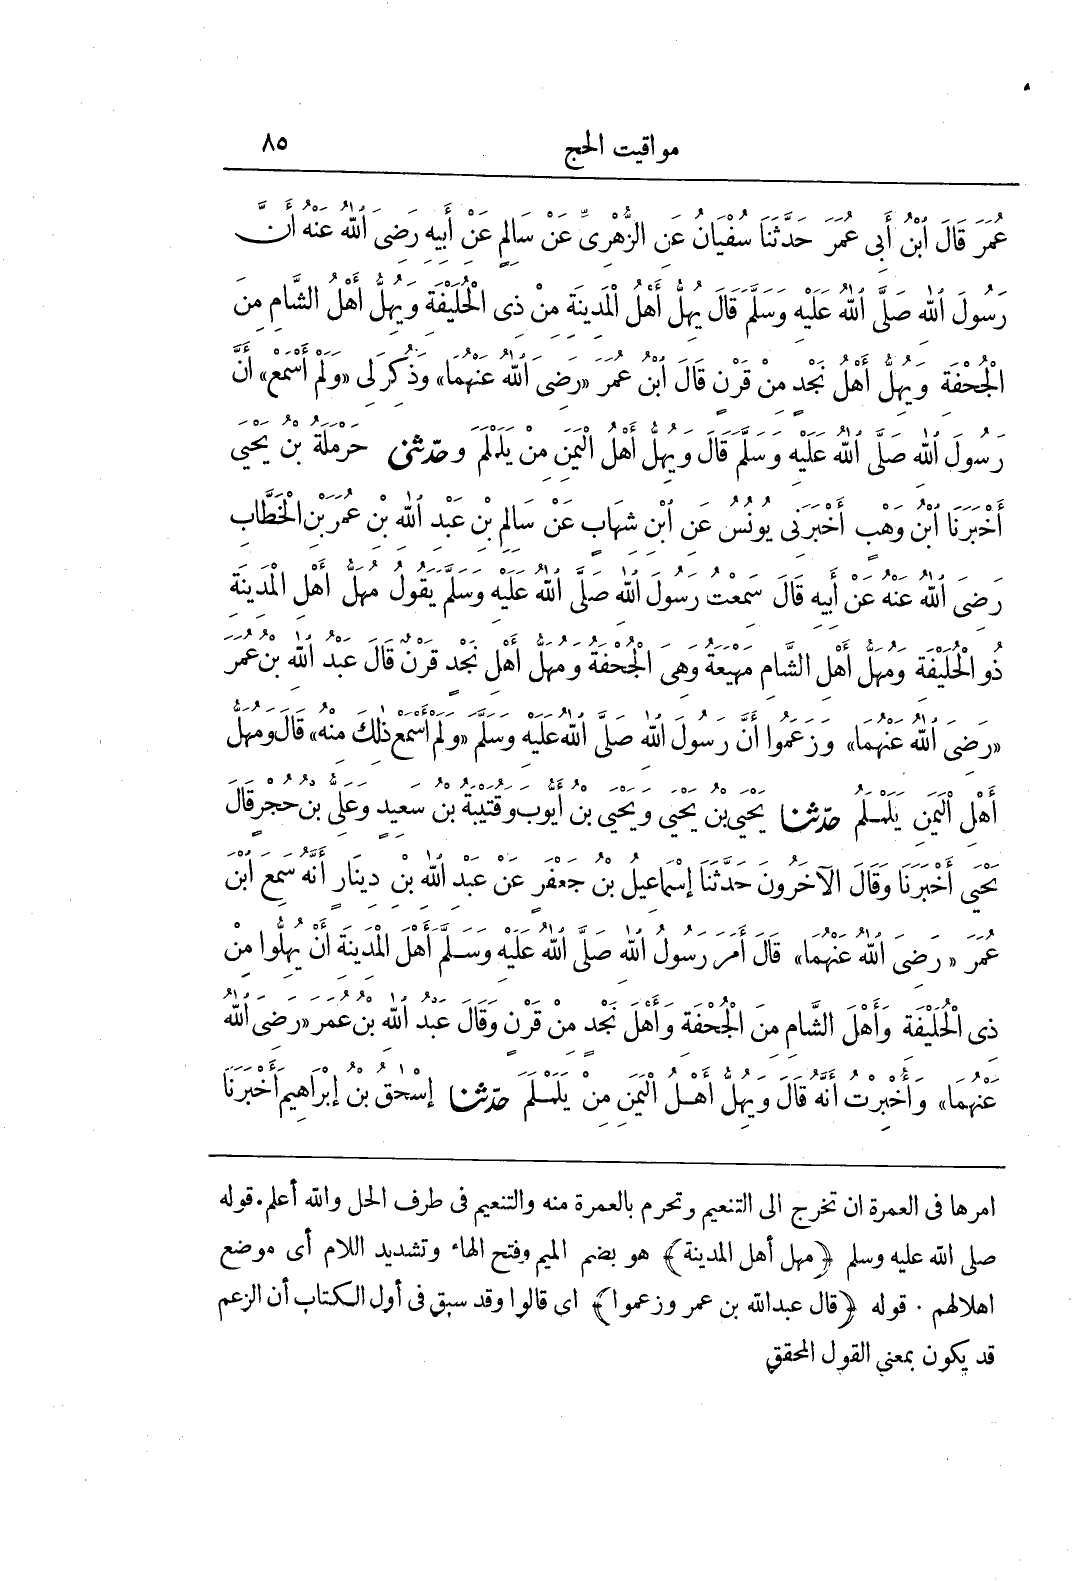 مواقيت الحج ٨٥
عُمَرَ قَالَ ابْنُ أَبِي عُمَرَ حَدَّثَنَا سُفْيَانُ عَنِ الزُّهْرِيِّ عَنْ سَالِمٍ عَنْ أَبِيهِ رَضِيَ اللهُ عَنْهُ أَنَّ
رَسُولَ اللهِ صَلَّى اللهُ عَلَيْهِ وَسَلَّمَ قَالَ يُهِلُّ أَهْلُ الْمَدِينَةِ مِنْ ذِي الْحُلَيْفَةِ وَيُهِلُّ أَهْلُ الشَّامِ مِنَ
الْجُحْفَةِ وَيُهِلُّ أَهْلُ نَجْدٍ مِنْ قَرْنٍ قَالَ ابْنُ عُمَرَ «رَضِيَ اللهُ عَنْهُمَا» وَذُكِرَ لِي «وَلَمْ أَسْمَعْ» أَنَّ
رَسُولَ اللهِ صَلَّى اللهُ عَلَيْهِ وَسَلَّمَ قَالَ وَيُهِلُّ أَهْلُ الْيَمَنِ مِنْ يَلَمْلَمَ وحَدَّثَنِي حَرْمَلَةُ بْنُ يَحْيَى
أَخْبَرَنَا ابْنُ وَهْبٍ أَخْبَرَنِي يُونُسُ عَنِ ابْنِ شِهَابٍ عَنْ سَالِمِ بْنِ عَبْدِ اللهِ بْنِ عُمَرَ بْنِ الْخَطَّابِ
رَضِيَ اللهُ عَنْهُ عَنْ أَبِيهِ قَالَ سَمِعْتُ رَسُولَ اللهِ صَلَّى اللهُ عَلَيْهِ وَسَلَّمَ يَقُولُ مُهَلُّ أَهْلِ الْمَدِينَةِ
ذُو الْحُلَيْفَةِ وَمُهَلُّ أَهْلِ الشَّامِ مَهْيَعَةُ وَهِيَ الْجُحْفَةُ وَمُهَلُّ أَهْلِ نَجْدٍ قَرْنٌ قَالَ عَبْدُ اللهِ بْنُ عُمَرَ
«رَضِيَ اللهُ عَنْهُمَا» وَزَعَمُوا أَنَّ رَسُولَ اللهِ صَلَّى اللهُ عَلَيْهِ وَسَلَّمَ «وَلَمْ أَسْمَعْ ذٰلِكَ مِنْهُ» قَالَ وَمُهَلُّ
أَهْلِ الْيَمَنِ يَلَمْلَمُ حَدَّثَنَا يَحْيَى بْنُ يَحْيَى وَيَحْيَى بْنُ أَيُّوبَ وَقُتَيْبَةُ بْنُ سَعِيدٍ وَعَلِيُّ بْنُ حُجْرٍ قَالَ
يَحْيَى أَخْبَرَنَا وَقَالَ الْآخَرُونَ حَدَّثَنَا إِسْمَاعِيلُ بْنُ جَعْفَرٍ عَنْ عَبْدِ اللهِ بْنِ دِينَارٍ أَنَّهُ سَمِعَ ابْنَ
عُمَرَ «رَضِيَ اللهُ عَنْهُمَا» قَالَ أَمَرَ رَسُولُ اللهِ صَلَّى اللهُ عَلَيْهِ وَسَلَّمَ أَهْلَ الْمَدِينَةِ أَنْ يُهِلُّوا مِنْ
ذِي الْحُلَيْفَةِ وَأَهْلَ الشَّامِ مِنَ الْجُحْفَةِ وَأَهْلَ نَجْدٍ مِنْ قَرْنٍ وَقَالَ عَبْدُ اللهِ بْنُ عُمَرَ «رَضِيَ اللهُ
عَنْهُمَا» وَأُخْبِرْتُ أَنَّهُ قَالَ وَيُهِلُّ أَهْلُ الْيَمَنِ مِنْ يَلَمْلَمَ حَدَّثَنَا إِسْحٰقُ بْنُ إِبْرَاهِيمَ أَخْبَرَنَا
امرها فى العمرة ان تخرج الى التنعيم وتحرم بالعمرة منه والتنعيم فى طرف الحل والله أعلم. قوله
صلى الله عليه وسلم ﴿مهل أهل المدينة﴾ هو بضم الميم وفتح الهاء وتشديد اللام أى موضع
اهلالهم. قوله ﴿قال عبدالله بن عمر وزعموا﴾ اى قالوا وقد سبق فى أول الكتاب أن الزعم
قد يكون بمعنى القول المحقق